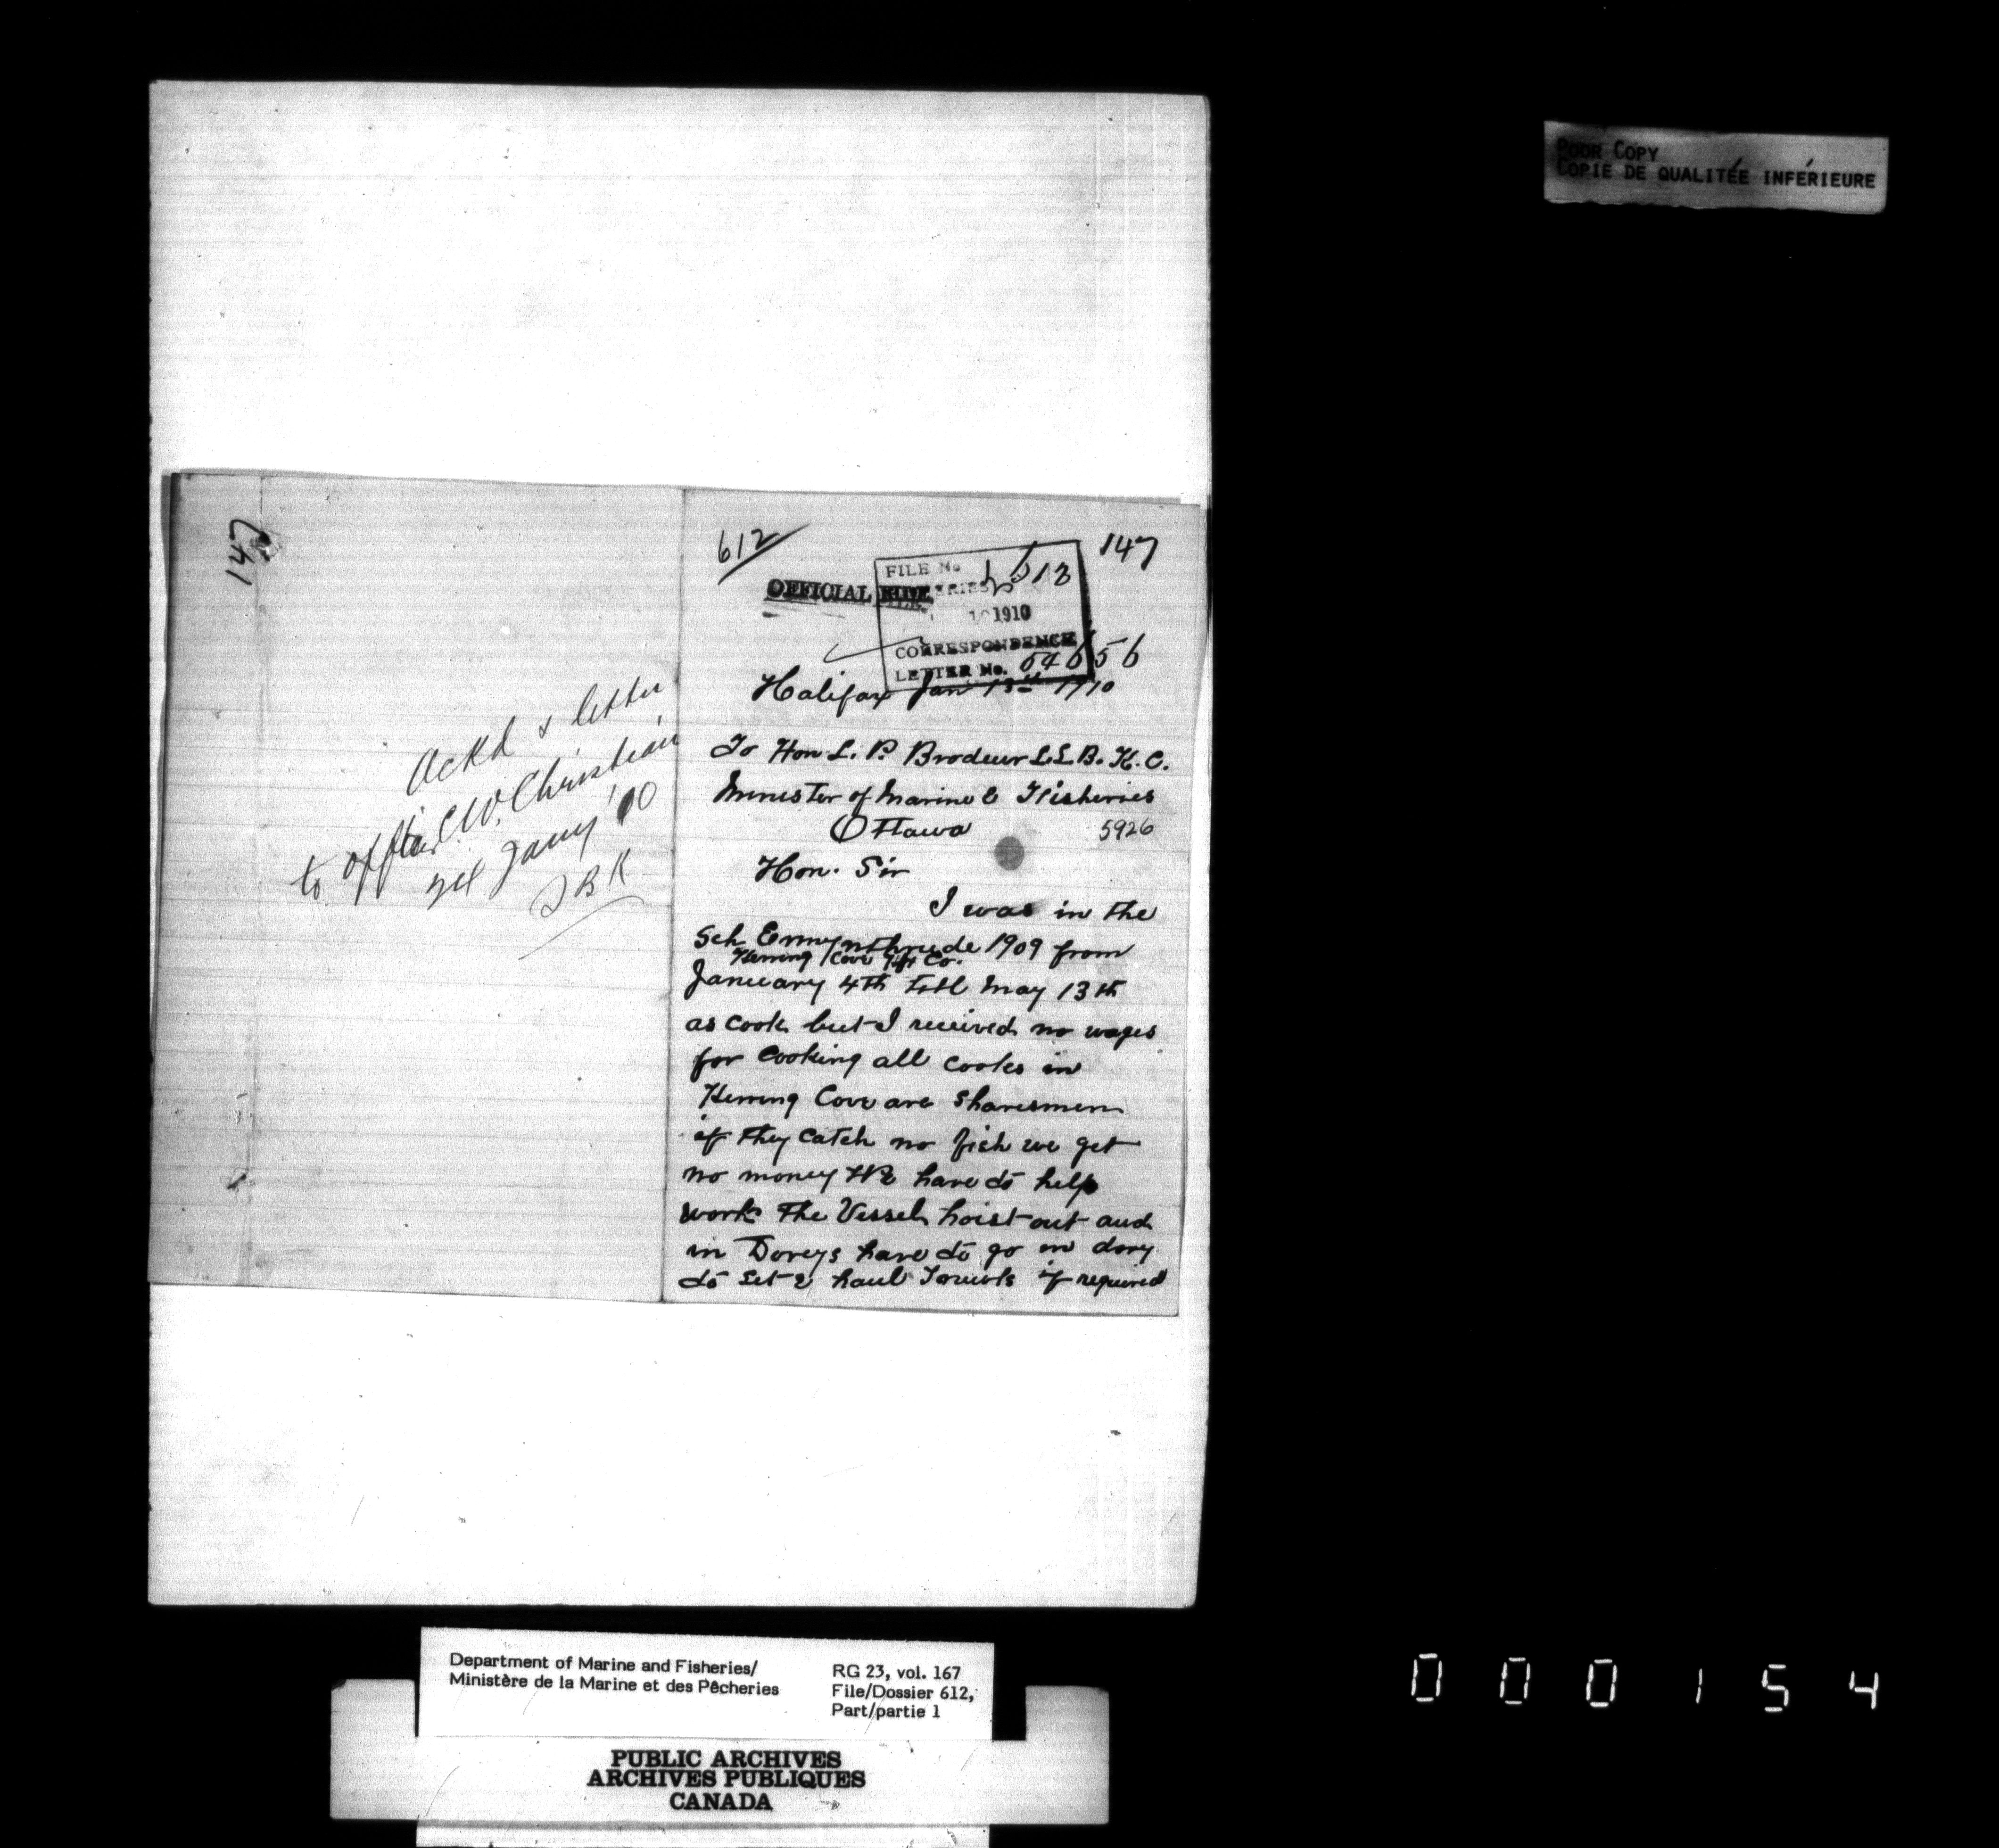 POOR COPY
COPIE DE QUALITÉE INFÉRIEURE
147
Ackd & letter
to officer C.W. Christian
Jany '10
612
147
OFFICIAL FILE
FILE No
1910
CORRESPONDENCE
LETTER No. 54656
Halifax Jan 13th 1910
To Hon L. P. Brodeur L.L.B. K.C.
Minister of Marine & Fisheries
Ottawa
5926
Hon. Sir
I was in the
Sch Ermynthrude 1909 from
Herring Cove Hfx Co.
January 4th till May 13th
as cook but I received no wages
for cooking all cooks in
Herring Cove are Sharesmen
if they catch no fish we get
no money We have to help
work the Vessel hoist out and
in Doreys have to go in dory
to set & haul Trawls if required
Department of Marine and Fisheries/
Ministère de la Marine et des Pêcheries
RG 23, vol. 167
File/Dossier 612,
Part/partie 1
PUBLIC ARCHIVES
ARCHIVES PUBLIQUES
CANADA
000154